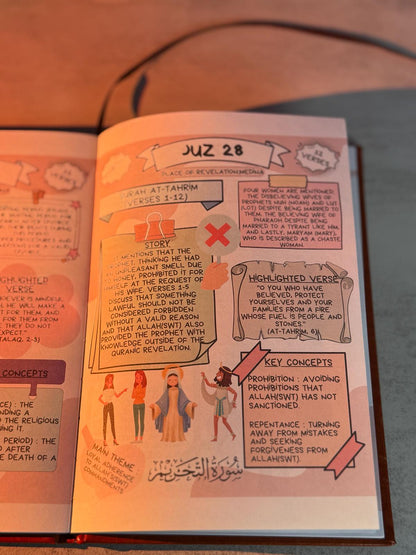 24
VERSES
HIGHLIGHTED
VERSE
OEVER IS MINDFUL
HE WILL MAKE A
UT FOR THEM, AND
FOR THEM FROM
THEY DO NOT
EXPECT."
TALAQ, 2-3)
CONCEPTS
CE) : THE
ENDING A
THE RELIGIOUS
ING IT.
PERIOD) : THE
D AFTER
DEATH OF A
JUZ 28
12
VERSES
PLACE OF REVELATION:MEDINA
RAH AT-TAHRIM
VERSES 1-12)
STORY
MENTIONS THAT THE
T, THINKING HE HAD
UNPLEASANT SMELL DUE
HONEY, PROHIBITED IT FOR
SELF AT THE REQUEST OF
HIS WIFE. VERSES 1-5
DISCUSS THAT SOMETHING
LAWFUL SHOULD NOT BE
CONSIDERED FORBIDDEN
WITHOUT A VALID REASON
AND THAT ALLAH(SWT) ALSO
PROVIDED THE PROPHET WITH
KNOWLEDGE OUTSIDE OF THE
QURANIC REVELATION.
FOUR WOMEN ARE MENTIONED:
THE DISBELIEVING WIVES OF
PROPHETS NUH (NOAH) AND LUT
(LOT) DESPITE BEING MARRIED TO
THEM, THE BELIEVING WIFE OF
PHARAOH DESPITE BEING
MARRIED TO A TYRANT LIKE HIM,
AND LASTLY, MARYAM (MARY),
WHO IS DESCRIBED AS A CHASTE
WOMAN.
HIGHLIGHTED VERSE
"O YOU WHO HAVE
BELIEVED, PROTECT
YOURSELVES AND YOUR
FAMILIES FROM A FIRE
WHOSE FUEL IS PEOPLE AND
STONES."
(AT-TAHRIM, 6)
KEY CONCEPTS
PROHIBITION : AVOIDING
PROHIBITIONS THAT
ALLAH(SWT) HAS NOT
SANCTIONED.
REPENTANCE : TURNING
AWAY FROM MISTAKES
AND SEEKING
FORGIVENESS FROM
ALLAH(SWT).
MAIN THEME
LOYAL ADHERENCE
TO ALLAH (SWT)
COMMANDMENTS
سُورَةُ التَّحْرِيمِ